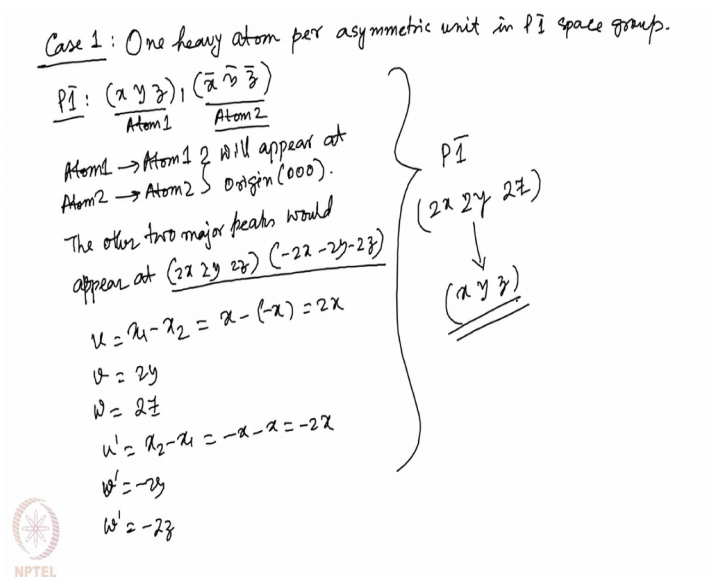 Case 1 : One heavy atom per asymmetric unit in P1̄ space group.
P1̄ : (x y z), (x̄ ȳ z̄)
Atom1 Atom2
Atom1 → Atom1 } will appear at
Atom2 → Atom2 } Origin (000).
The other two major peaks would
appear at (2x 2y 2z) (-2x -2y -2z)
u = x₁ - x₂ = x - (-x) = 2x
v = 2y
w = 2z
u' = x₂ - x₁ = -x - x = -2x
v' = -2y
w' = -2z
P1̄
(2x 2y 2z)
↓
(x y z)
NPTEL